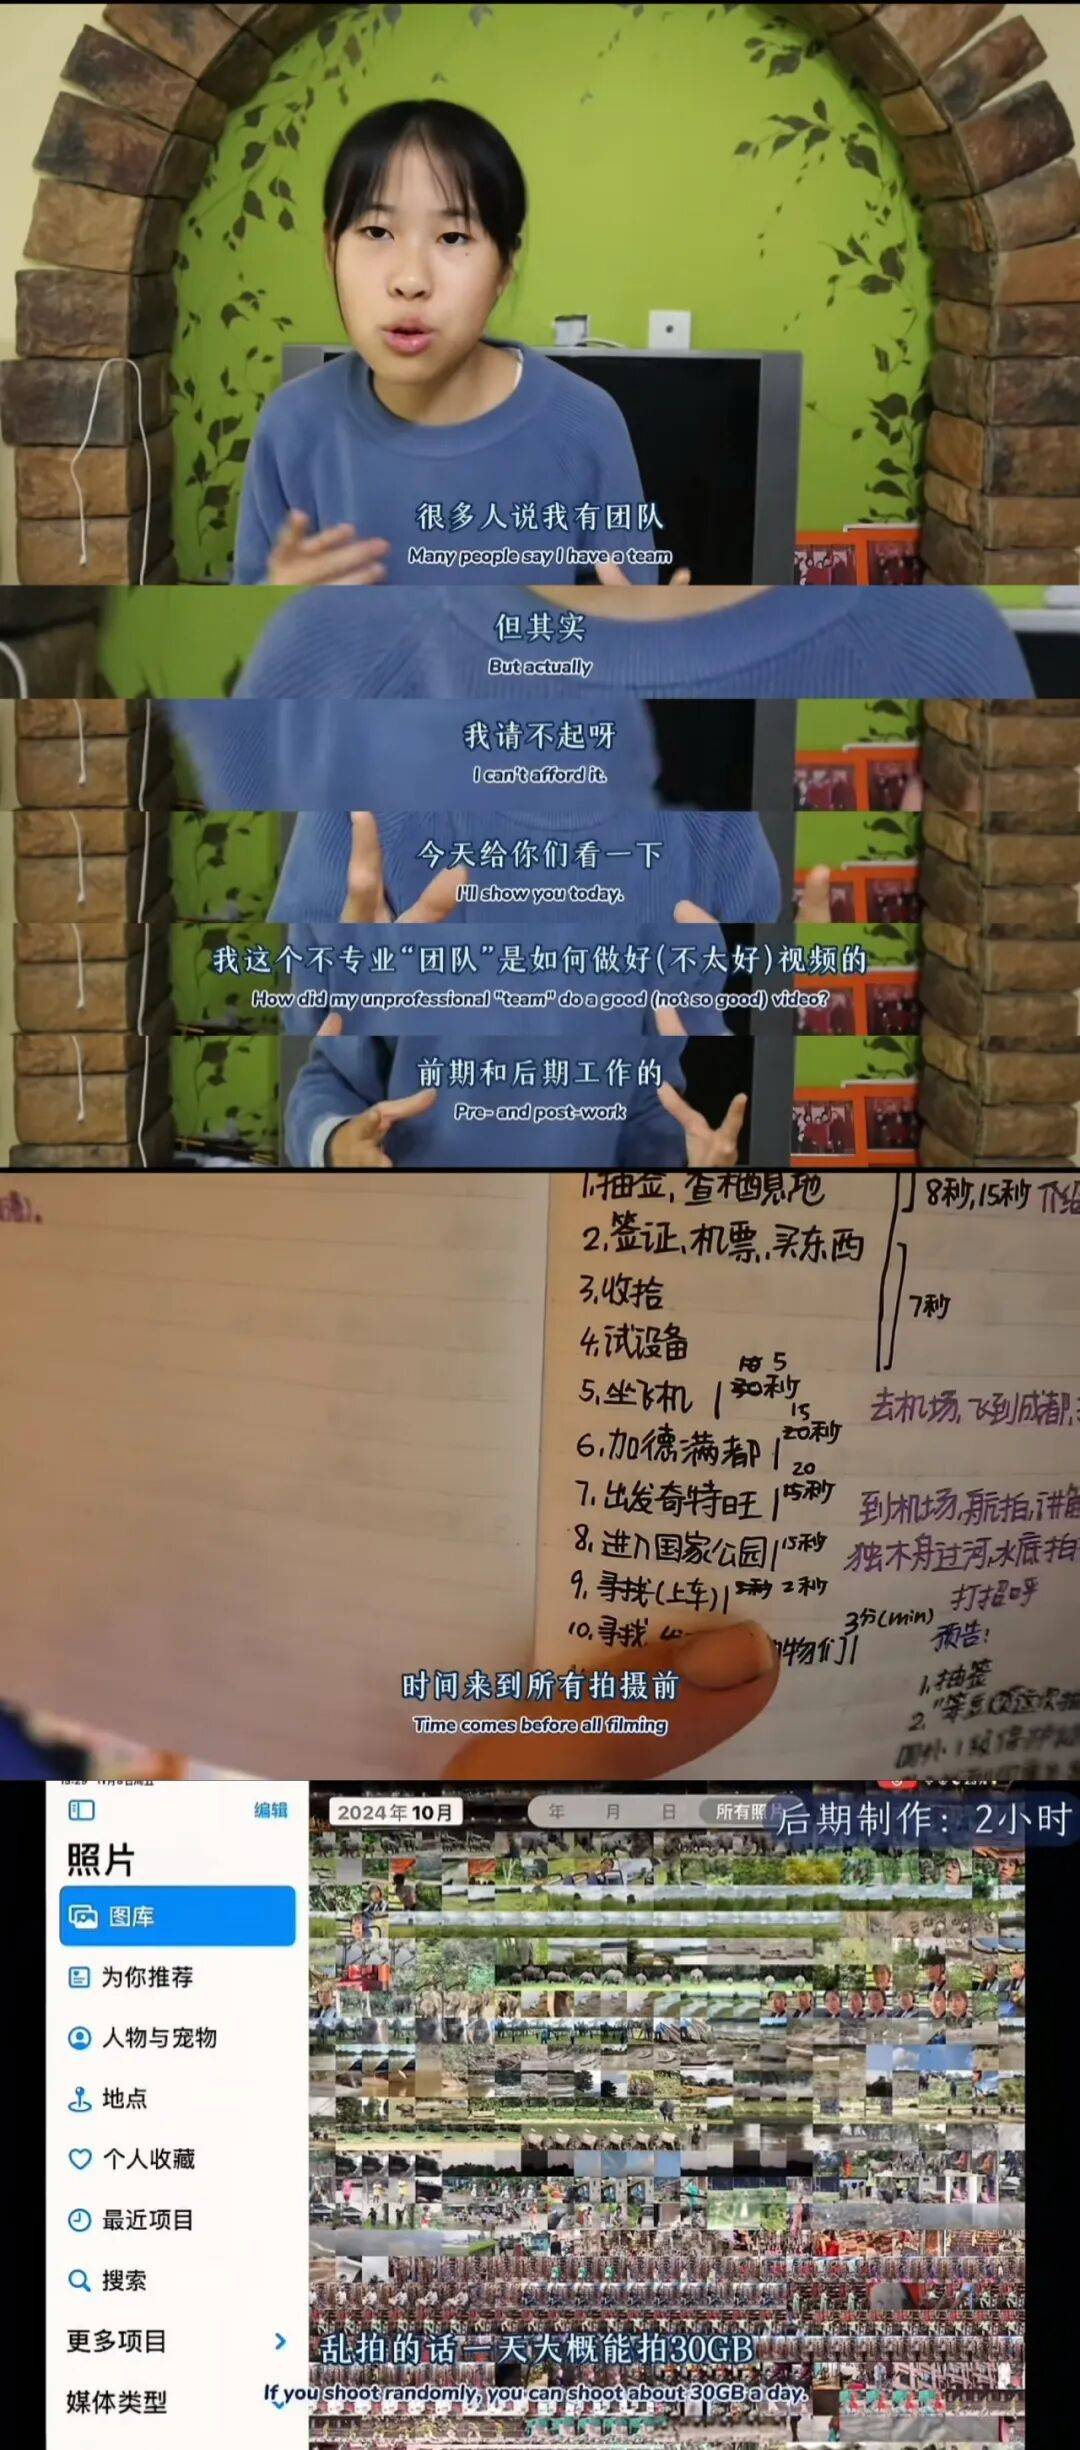 很多人说我有团队
Many people say I have a team
但其实
But actually
我请不起呀
I can't afford it.
今天给你们看一下
I'll show you today.
我这个不专业“团队”是如何做好(不太好)视频的
How did my unprofessional "team" do a good (not so good) video?
前期和后期工作的
Pre- and post-work
1.抽签,查栖息地
8秒,15秒
2.签证、机票、买东西
3.收拾
7秒
4.试设备
5.坐飞机
5
秒
去机场,飞到成都,
6.加德满都
15
20秒
7.出发奇特旺
20
15秒
到机场,航拍,讲解
8.进入国家公园 15秒
独木舟过河,水底拍
9.寻找(上车) 2秒
打招呼
10.寻找
物们
3分(min)
预告:
1.抽签
2.
时间来到所有拍摄前
Time comes before all filming
编辑
2024年10月
年 月 日 所有照片
后期制作：2小时
照片
图库
为你推荐
人物与宠物
地点
个人收藏
最近项目
搜索
更多项目
媒体类型
乱拍的话一天大概能拍30GB
If you shoot randomly, you can shoot about 30GB a day.